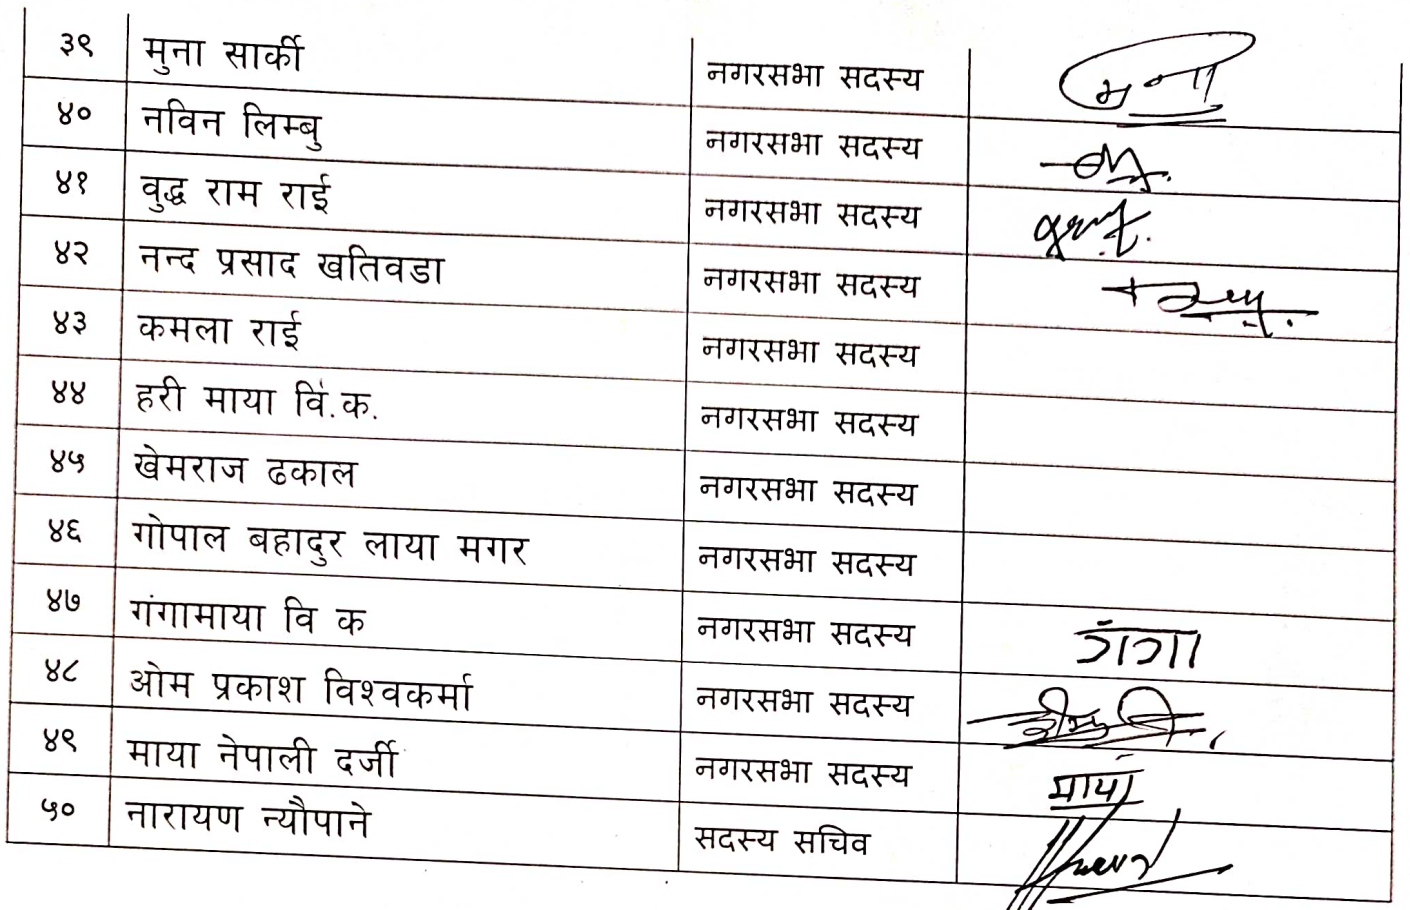 ३९ मुना सार्की नगरसभा सदस्य मुना
४० नविन लिम्बु नगरसभा सदस्य
४१ वुद्ध राम राई नगरसभा सदस्य
४२ नन्द प्रसाद खतिवडा नगरसभा सदस्य
४३ कमला राई नगरसभा सदस्य
४४ हरी माया वि.क. नगरसभा सदस्य
४५ खेमराज ढकाल नगरसभा सदस्य
४६ गोपाल बहादुर लाया मगर नगरसभा सदस्य
४७ गंगामाया वि क नगरसभा सदस्य गंगा
४८ ओम प्रकाश विश्वकर्मा नगरसभा सदस्य
४९ माया नेपाली दर्जी नगरसभा सदस्य माया
५० नारायण न्यौपाने सदस्य सचिव